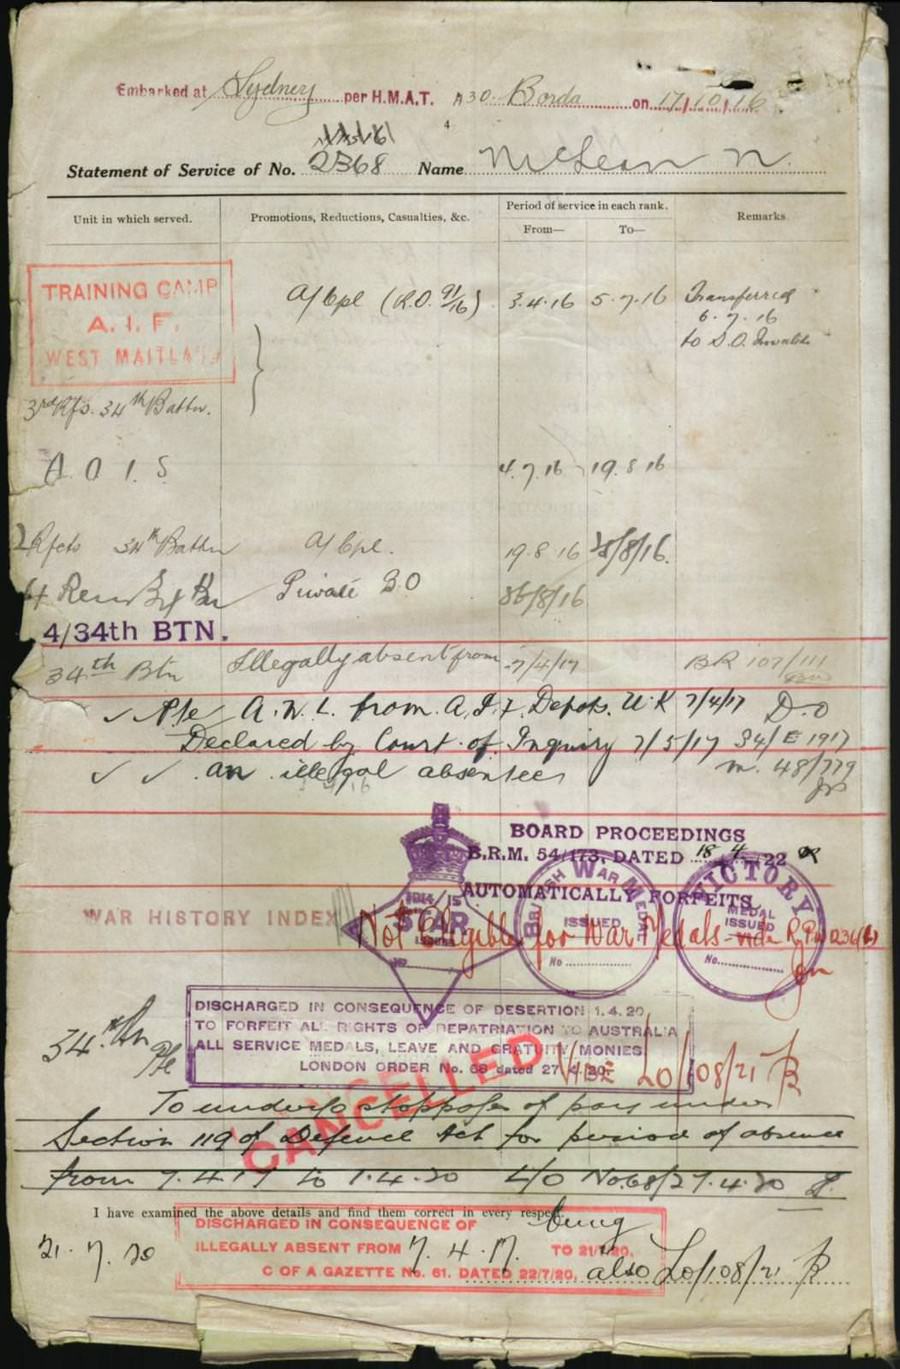 Embarked at Sydney per H.M.A.T. A30 Borda on 17/10/16
4
Statement of Service of No. 2368 Name McLean N.
Unit in which served. Promotions, Reductions, Casualties, &c. Period of service in each rank. Remarks
From— To—
TRAINING CAMP
A. I. F.
WEST MAITLAND
A/Cpl (R.O. 91/16) 3.4.16 5.7.16 Transferred
6.7.16
to S.O. Invalids
3rd Rfs. 34th Battn.
A O I S 4.7.16 19.8.16
Rfcts 34th Battn A/Cpl. 19.8.16 /8/16.
Private B.O /8/16
4/34th BTN.
34th Btn Illegally absent from 7/4/17 BR 107/111
✓ Pte A.W.L. from A.I.F. Depots. U.K 7/4/17 D.O
Declared by Court of Inquiry 7/5/17 34/E 1917
✓ ✓ an illegal absentee m. 48/779
BOARD PROCEEDINGS
B.R.M. 54/173, DATED 18 4 22
AUTOMATICALLY FORFEITS
1914/15
STAR
ISSUED
No
BRITISH WAR MEDAL
ISSUED
No
VICTORY
MEDAL
ISSUED
No.
WAR HISTORY INDEX
Not Eligible for War Medals vide
DISCHARGED IN CONSEQUENCE OF DESERTION 1.4.20
TO FORFEIT ALL RIGHTS OF REPATRIATION TO AUSTRALIA
ALL SERVICE MEDALS, LEAVE AND GRATUITY MONIES
LONDON ORDER No. 68 dated 27.4.20.
34th Bn
Pte
VIDE LO/108/21
CANCELLED
To undergo stoppage of pay under
Section 119 of Defence Act for period of absence
from 7.4.17 to 1.4.20 L/O No.68/27.4.20
I have examined the above details and find them correct in every respect.
being
DISCHARGED IN CONSEQUENCE OF
ILLEGALLY ABSENT FROM 7.4.17. TO 21/7/20,
C OF A GAZETTE No. 61. DATED 22/7/20,
21.7.20
also LO/108/21